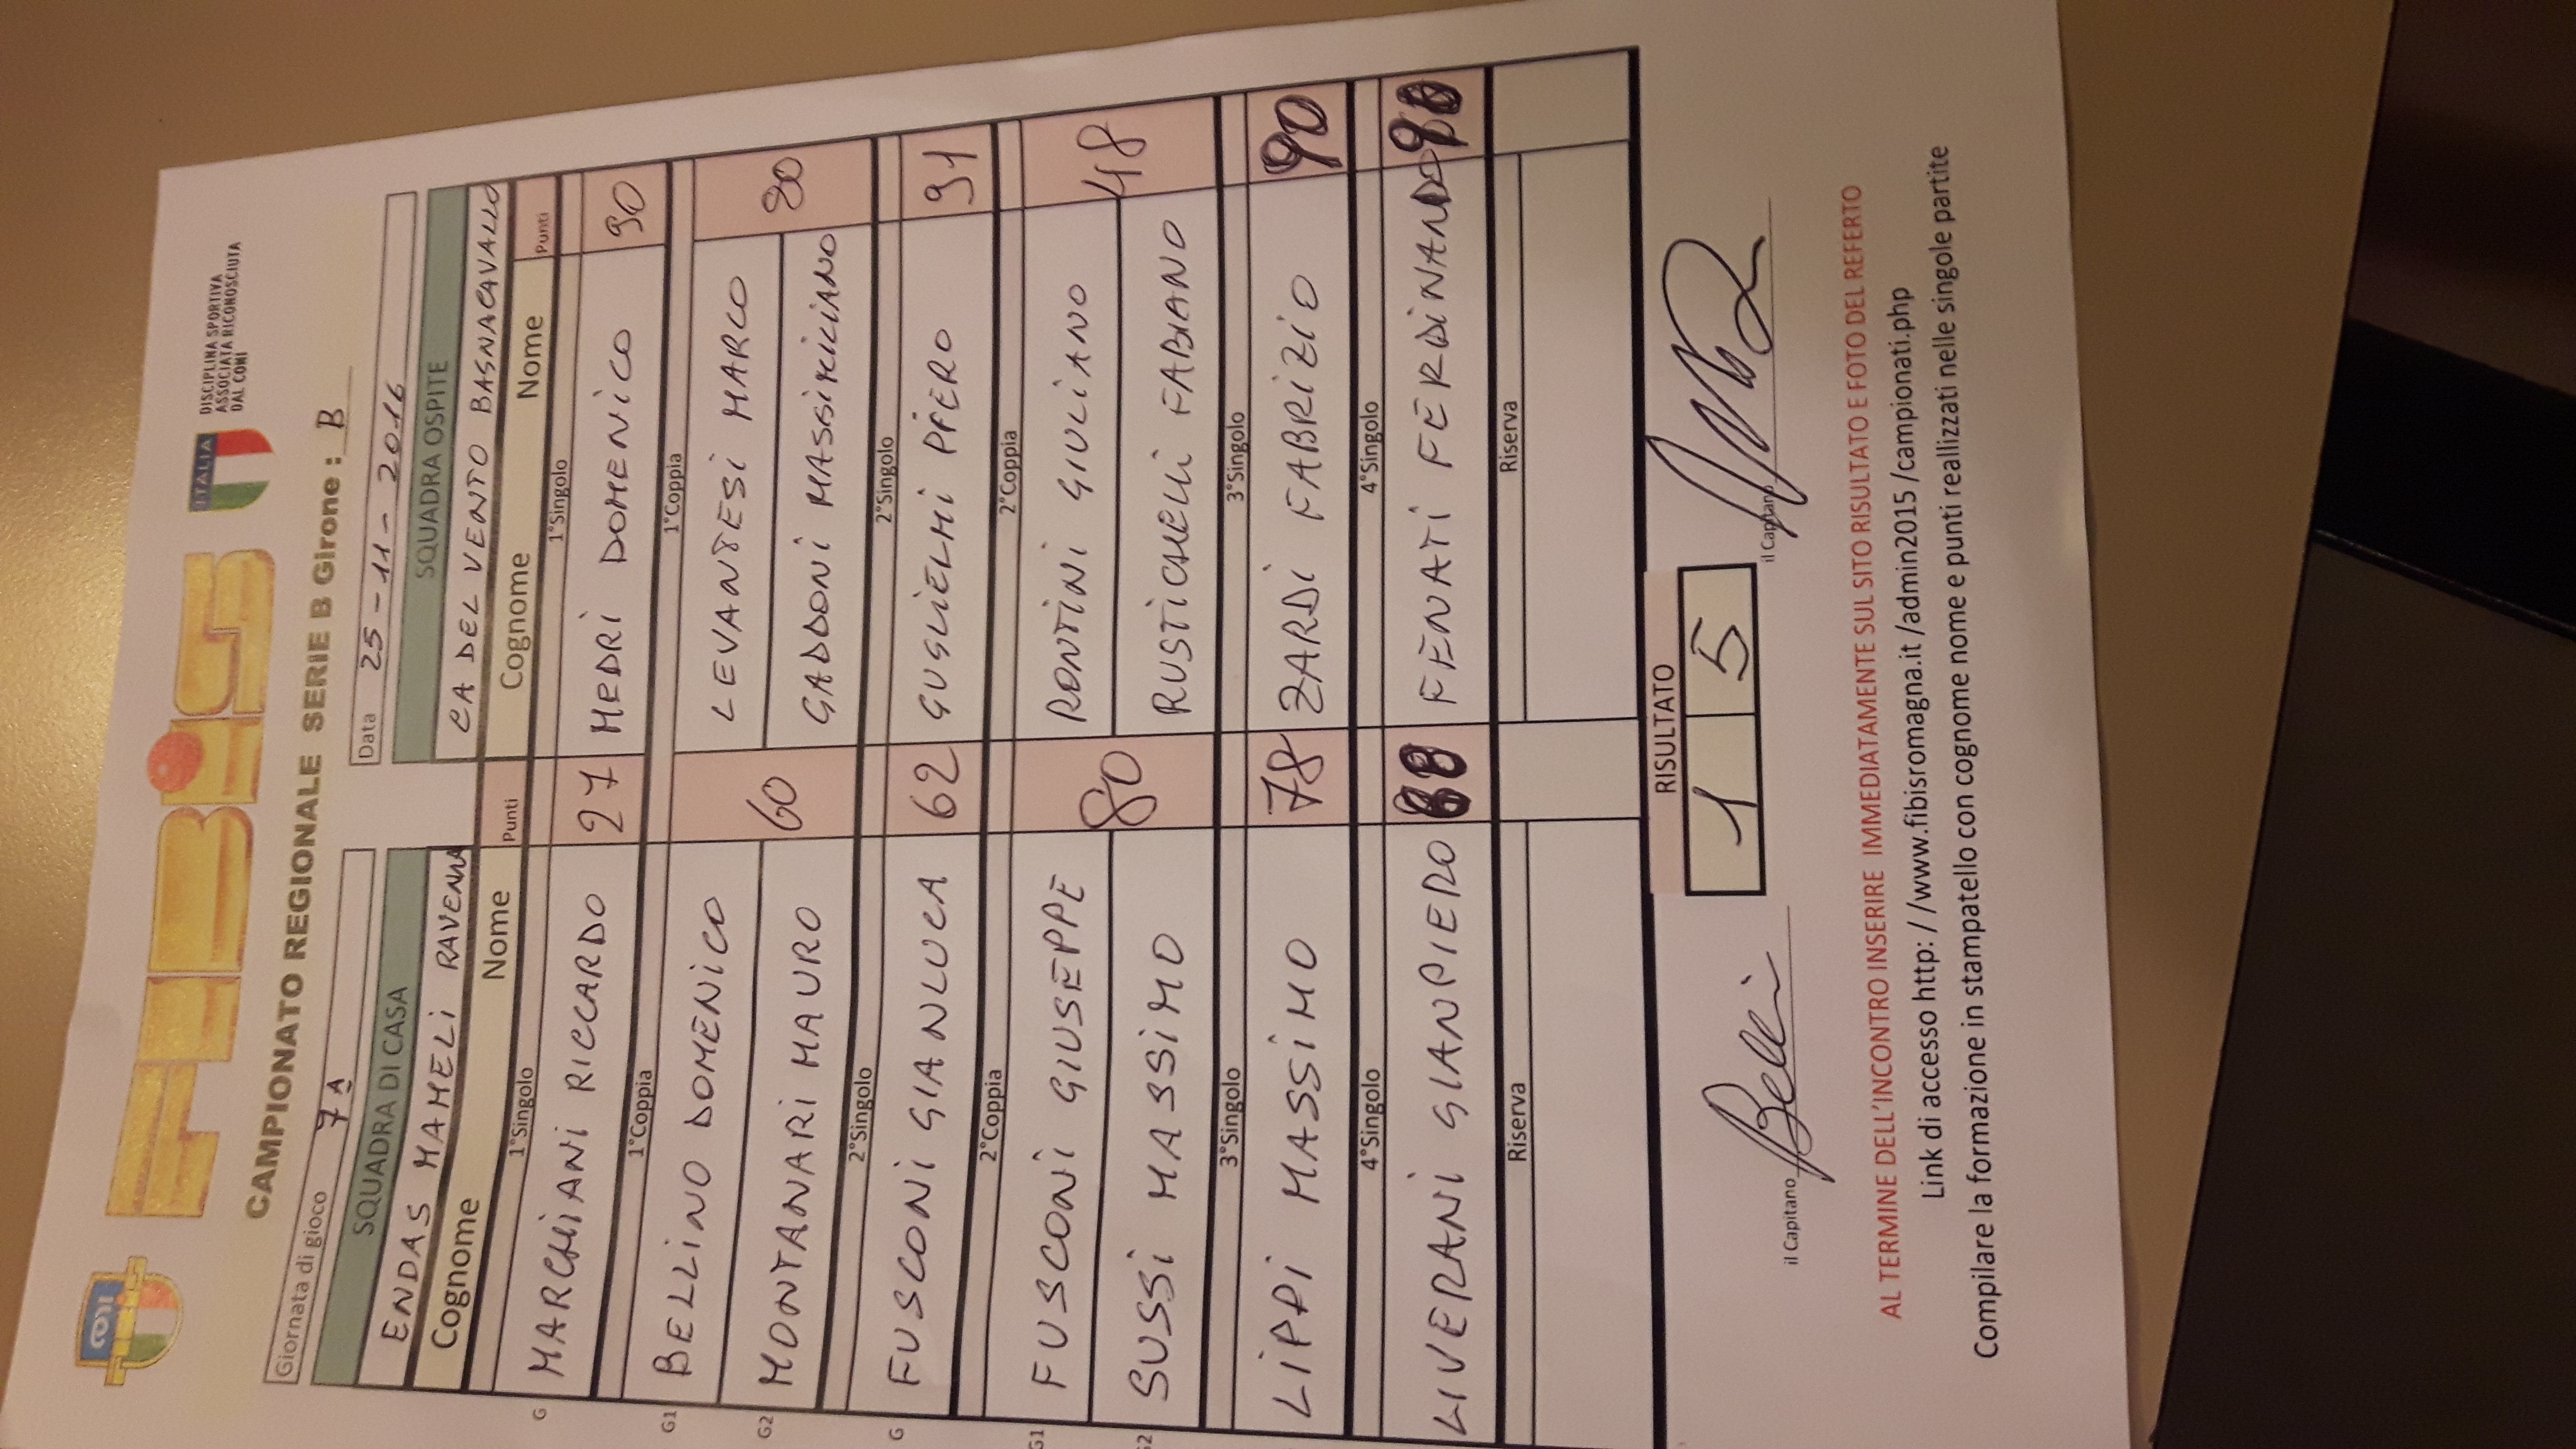 CONI
FIBiS
ITALIA
DISCIPLINA SPORTIVA
ASSOCIATA RICONOSCIUTA
DAL CONI
CAMPIONATO REGIONALE SERIE B Girone : B
Giornata di gioco 7A
Data 25-11-2016
SQUADRA DI CASA SQUADRA OSPITE
ENDAS MAMELI RAVENNA CA DEL VENTO BAGNACAVALLO
Cognome Nome Punti Cognome Nome Punti
1°Singolo 1°Singolo
G MARCHIANI RICCARDO 27 MEDRI DOMENICO 90
1°Coppia 1°Coppia
G1 BELLINO DOMENICO 60 LEVANTESI MARCO 80
G2 MONTANARI MAURO GADDONI MASSIMILIANO
2°Singolo 2°Singolo
G FUSCONI GIANLUCA 62 GUGLIELMI PIERO 91
2°Coppia 2°Coppia
G1 FUSCONI GIUSEPPE 80 RONTINI GIULIANO 48
G2 SUSSI MASSIMO RUSTICHELLI FABIANO
3°Singolo 3°Singolo
LIPPI MASSIMO 78 ZARDI FABRIZIO 90
4°Singolo 4°Singolo
LIVERANI GIANPIERO FENATI FERDINANDO
Riserva Riserva
RISULTATO
1 5
il Capitano Belli il Capitano
AL TERMINE DELL'INCONTRO INSERIRE IMMEDIATAMENTE SUL SITO RISULTATO E FOTO DEL REFERTO
Link di accesso http: / /www.fibisromagna.it /admin2015 /campionati.php
Compilare la formazione in stampatello con cognome nome e punti reallizzati nelle singole partite